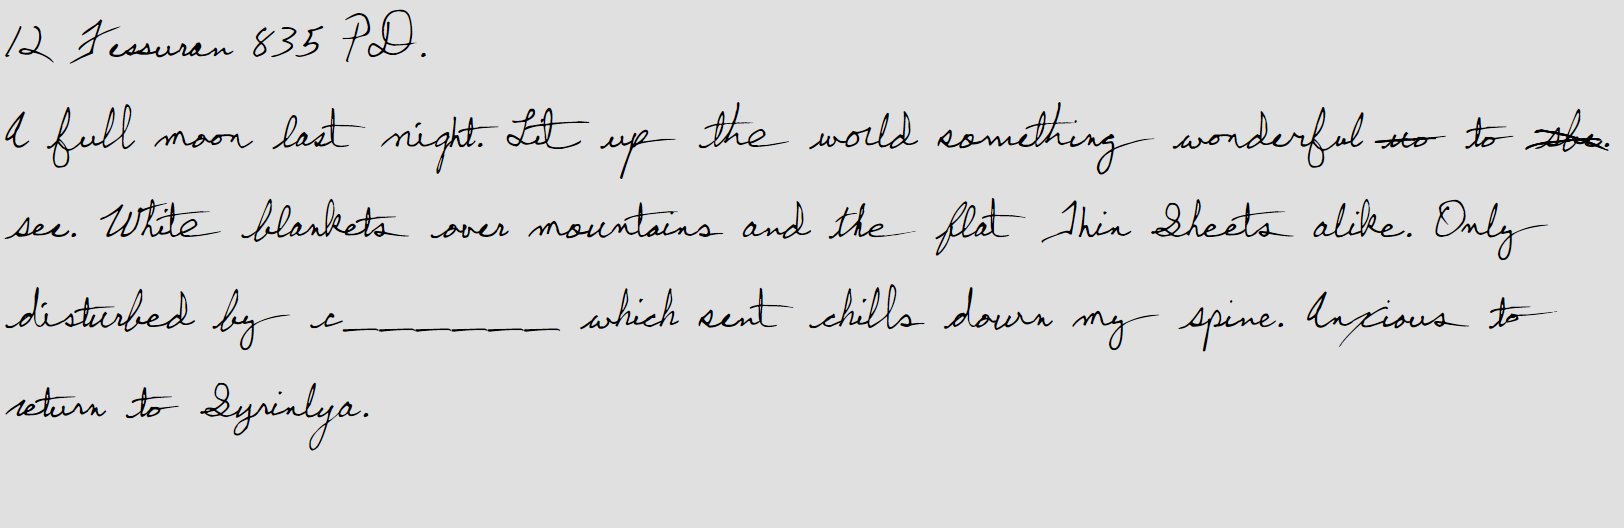 12 Fessuran 835 P.D.
A full moon last night. Lit up the world something wonderful to
see. White blankets over mountains and the flat Thin Sheets alike. Only
disturbed by c_______ which sent chills down my spine. Anxious to
return to Syrinlya.